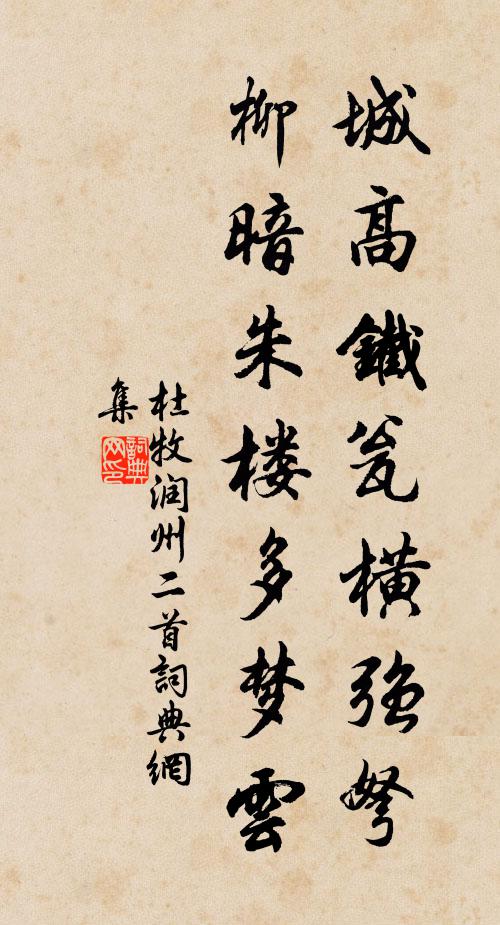 城高鐵瓮横强弩
柳暗朱楼多梦雲
杜牧润州二首詞典網
集
詞典
网印